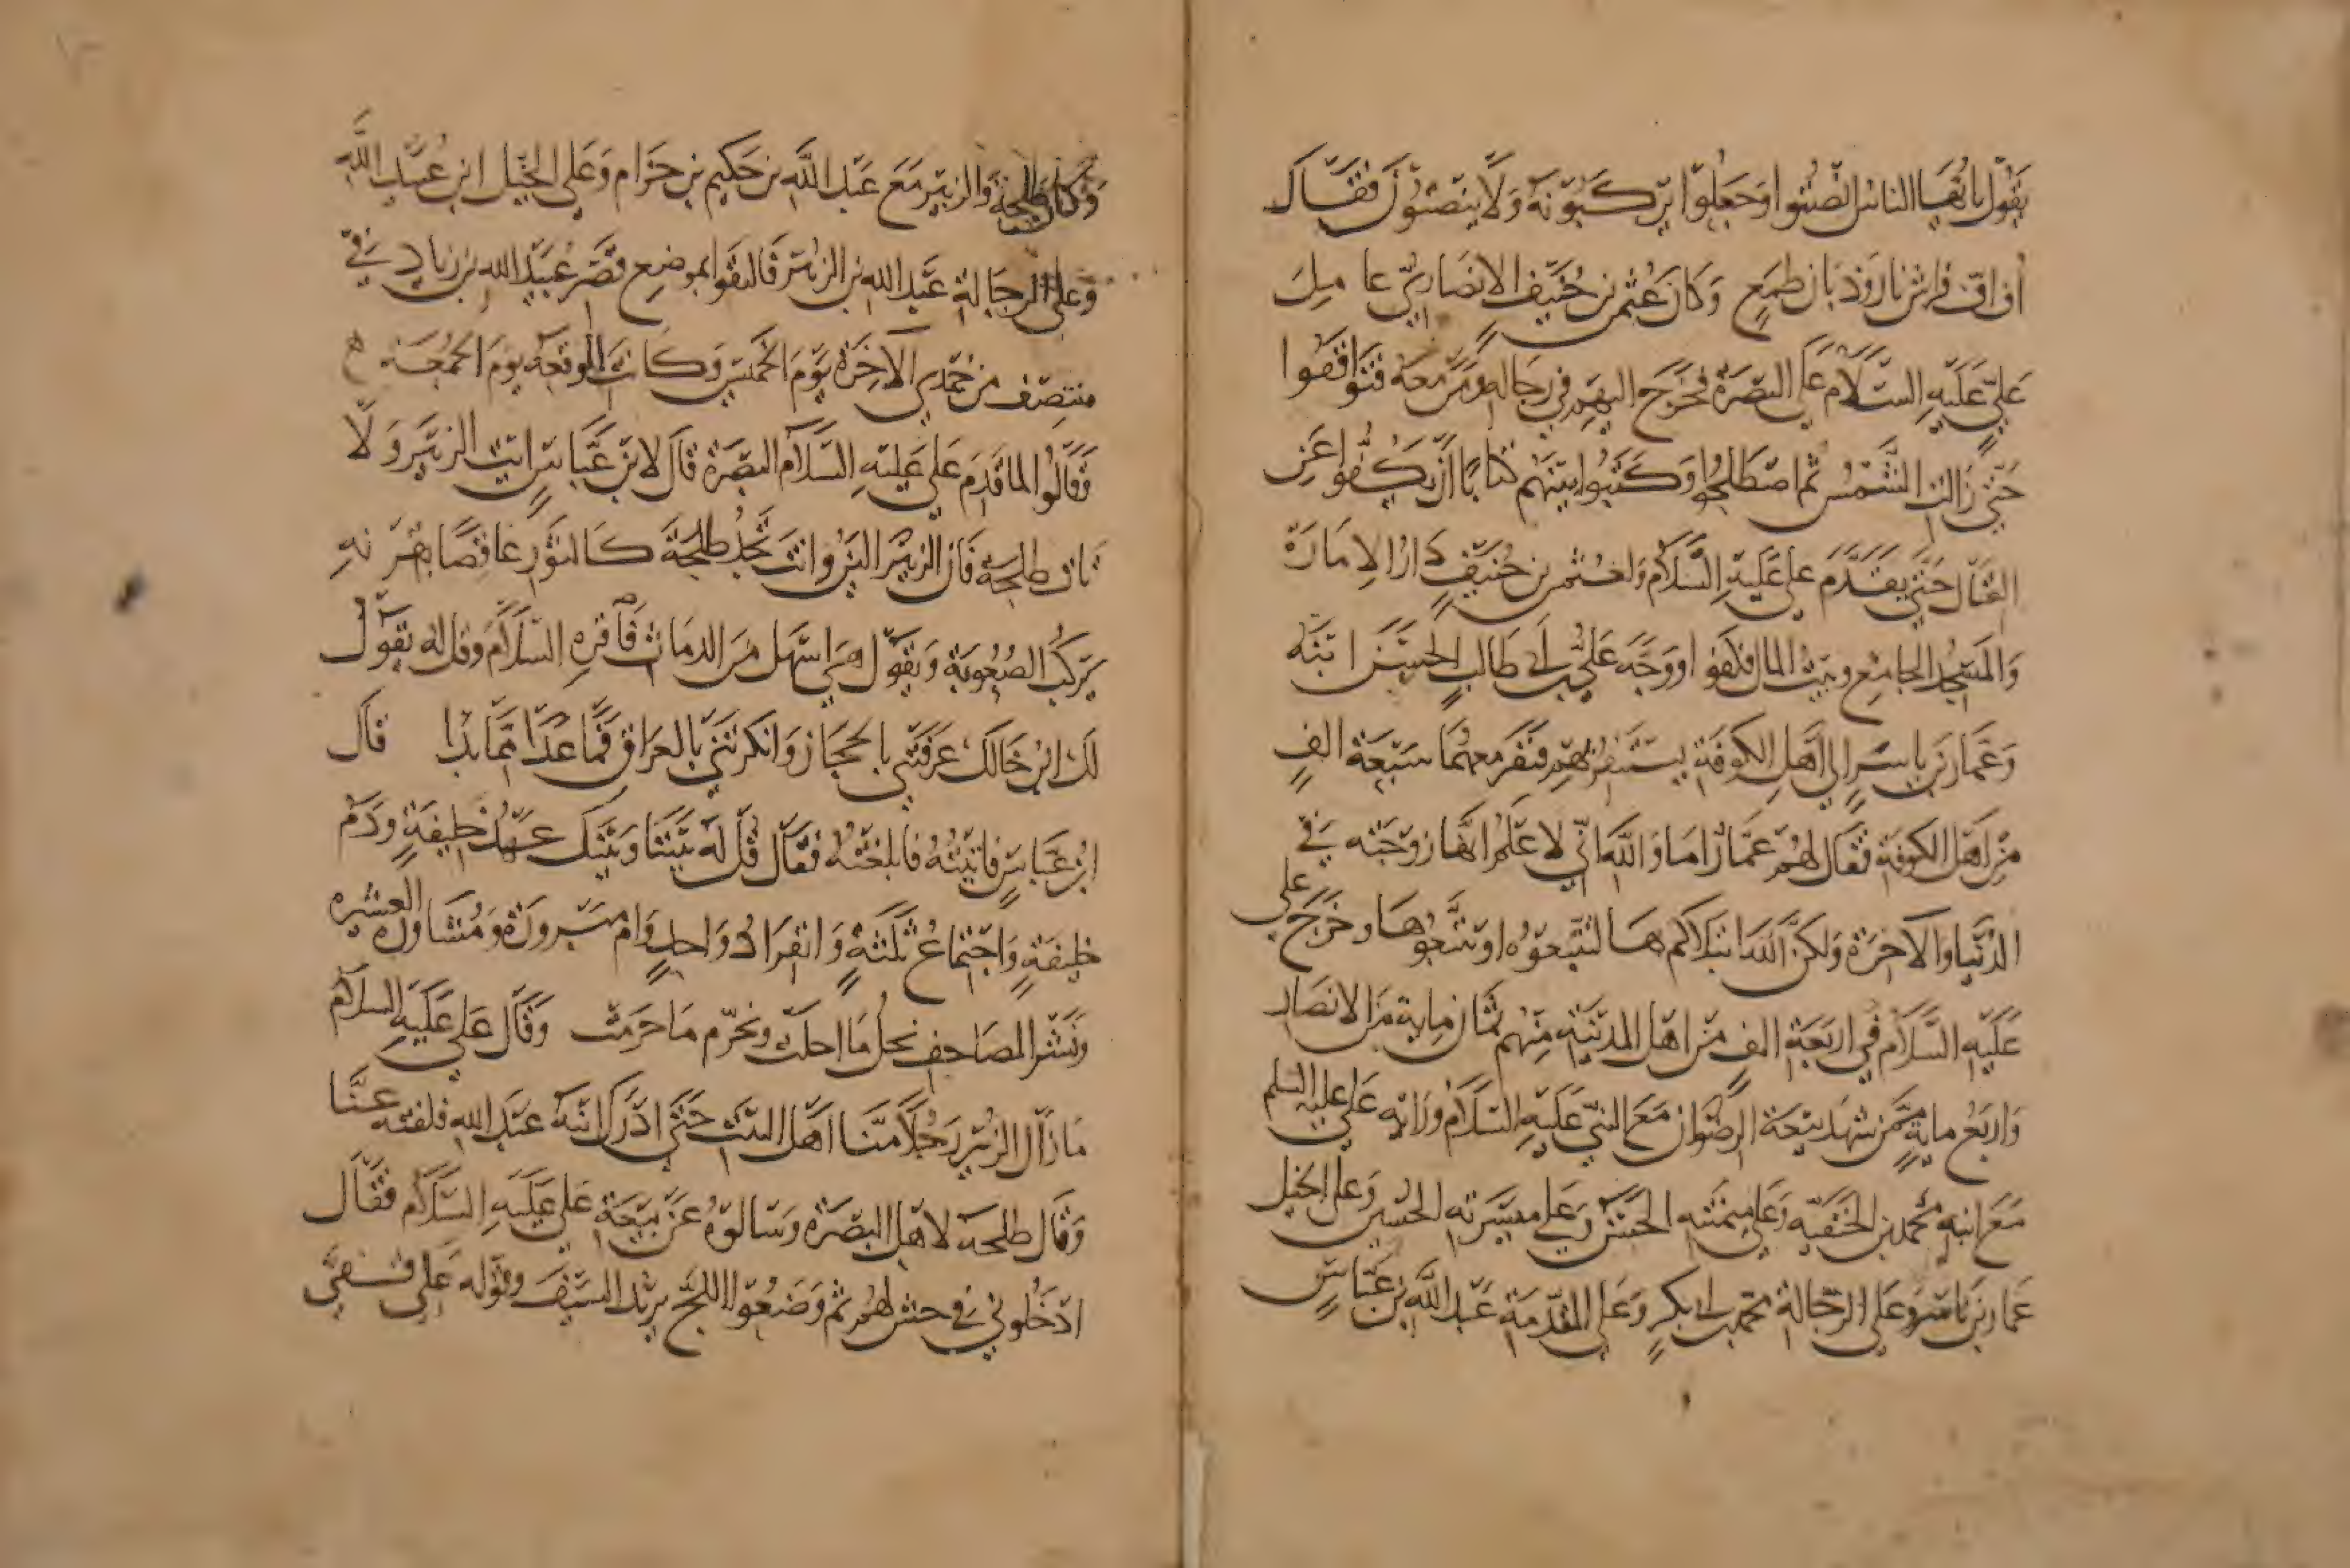 يَقُولُ يا ايُّهَا الناسُ انْصِتُوا وَجَعَلُوا يَرْكَبُونَهُ وَلَا يَنصِتُونَ فَقَالَ
أف اف فراش نار وذبان طمع وَكَانَ عُثمن بن حُنَيْف الانصَاريّ عامل
عَليٍّ عَلَيْهِ السَّلَامُ عَلى البَصْرَة فخَرَجَ اليهم في رجَاله وَمَنْ معَهُ فتواقفوا
حَتّى زَالت الشَّمْسُ ثم اصْطَلحُوا وَكَتَبُوا بَيْنَهُم كتابًا أن يَكُفّوا عَن
القتَال حَتَّى يَقْدَمَ علي عَلَيْهِ السَّلَام وَلعُثمن بن حُنَيْفٍ دَارُ الامَارَة
وَالمَسْجدُ الجَامعُ وبَيْتُ المال فكفوا وَوَجَّهَ عَليُّ بن أبي طَالبٍ الحَسَنَ ابْنَهُ
وَعَمّارَ بن ياسرٍ الى اهْل الكوفَة يَسْتَنفِرُهُمْ فنَفَرَ معهُمَا سَبْعَة الفٍ
مِنْ اهْل الكوفَة فقال لهُمْ عَمّارٌ امَا وَاللَّه انّي لا عْلَمُ انّهَا زَوْجَتُه في
الدُّنْيَا وَالآخِرَة وَلكنَّ اللَّه ابْتلاكم بهَا لتَتَّبعُوْهُ اوْ تَتَّبعُوْهَا وخَرَجَ علي
عَلَيْه السَّلَامُ في ارْبَعَة الفٍ منْ اهْل المدينَة مِنْهُم ثمَان مايةٍ مِنَ الانصَار
وَارْبَعُ مايةٍ ممَّنْ شهدَ بَيْعَة الرضْوَان مَعَ النَّبيّ عَلَيْه السَّلَامُ ورَايَة عَلي عليه السلم
مَعَ ابنهِ محمّد بن الحَنَفيّه وَعَلى مَيْمَنَته الحَسَنُ وَعَلى مَيْسَرَته الحُسَيْن وَعَلى الخيْل
عَمّار بن يَاسر وَعَلى الرجّالة محمّد بن أبي بكرٍ وَعَلى المقدّمَة عَبْد اللَّه بن عَبّاسٍ
وَكان طلحَة وَالزبَيْر مَعَ عَبْد اللَّه بن حَكيم بن حزَام وَعَلى الخَيْل ابن عُبَيْد اللَّه
وعلى الرجَالة عَبْد الله بن الزبَيْر فَالتَقَوا بموضع قَصْر عُبَيْد الله بن زيَاد في
منتصَف من جُمدى الآخِرَة يَوْمَ الخَميْس وَكَانت الوقعَة يومَ الجمُعَة
وَقَالُوا لمّا قَدمَ عَلي عَلَيْهِ السَّلَام البَصْرَة قالَ لابْن عَبّاسٍ ايت الزبَيْر وَلَا
تات طلحَة فَان الزبَيْر اليَنُ وانتَ تَجدُ طلحَة كَالثَوْر عَاقصًا بقَرنهِ
يَرْكَبُ الصُعُوبَة وَيَقُولُ هيَ اسْهَل منَ الدمَاث فَاقرهِ السَّلَامَ وقل له يَقُولُ
لكَ ابْن خَالكَ عَرَفْتَني بالحجَاز وَانكَرْتَني بالعِرَاق فَمَا عَدَا ممَّا بَدَا قال
ابْنُ عَبّاسٍ فاتيْتُهُ فابلغْتُهُ فقالَ قُلْ لَه بَيْننَا وَبَيْنَك عَهْدُ خليفةٍ وَدَمُ
خليفَةٍ وَاجْتمَاعُ ثلثةٍ وَانفرَادُ وَاحدٍ وَامٌ مَبْرورَةٌ وَمُشَاورَة العَشيره
وَنَشْرُ المصَاحف نحلّ مَا احلت ونحرّم ما حَرّمت وَقَالَ عَلي عَلَيْهِ السلَامُ
مَا زَالَ الزبَيْر رَجُلًا منَّا اهْل البَيْت حَتَّى ادْرَكَ ابنهُ عَبْد الله فلفته عَنَّا
وَقَال طلحَة لاهْل البَصْرَة وسَالوْهُ عَنْ بَيْعَة عَلي عَلَيْهِ السَّلَامُ فقَال
ادْخَلُوني في حشٍ لهُم ثم وَضَعُوا اللجّ يريْد السَيْفَ وقوله عَلى قفيَّ